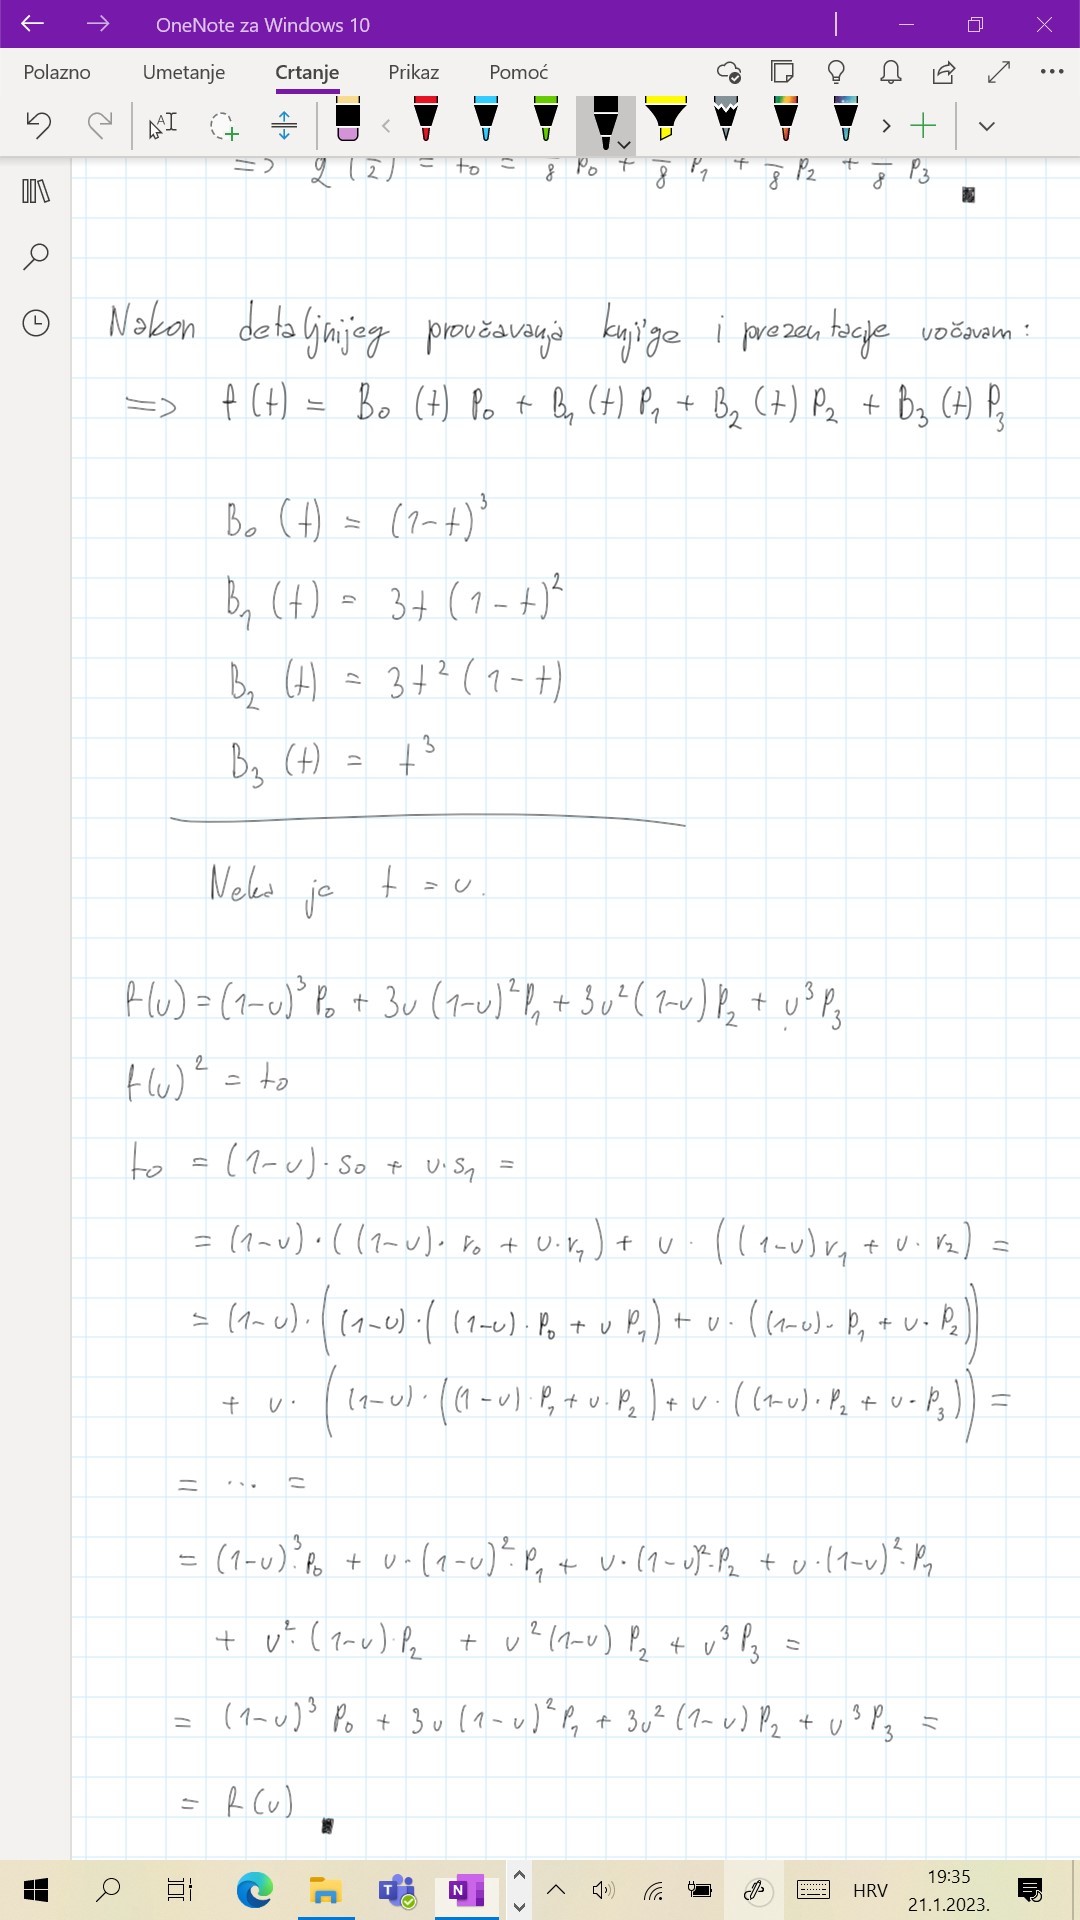 OneNote za Windows 10
Polazno Umetanje Crtanje Prikaz Pomoć
=> g(1/2) = t0 = 1/8 P0 + 3/8 P1 + 3/8 P2 + 1/8 P3
Nakon detaljnijeg proučavanja knjige i prezentacije uočavam:
=> f(t) = B0(t) P0 + B1(t) P1 + B2(t) P2 + B3(t) P3
B0(t) = (1-t)³
B1(t) = 3t(1-t)²
B2(t) = 3t²(1-t)
B3(t) = t³
Neka je t = u.
f(u) = (1-u)³P0 + 3u(1-u)²P1 + 3u²(1-u)P2 + u³P3
f(u)² = t0
t0 = (1-u)·s0 + u·s1 =
= (1-u)·((1-u)·r0 + u·r1) + u·((1-u)r1 + u·r2) =
= (1-u)·((1-u)·((1-u)·P0 + u P1) + u·((1-u)·P1 + u·P2))
+ u·((1-u)·((1-u)·P1 + u·P2) + u·((1-u)·P2 + u·P3)) =
= ... =
= (1-u)³·P0 + u·(1-u)²·P1 + u·(1-u)²·P2 + u·(1-u)²·P1
+ u²·(1-u)·P2 + u²(1-u) P2 + u³P3 =
= (1-u)³ P0 + 3u(1-u)²P1 + 3u²(1-u)P2 + u³P3 =
= f(u)
HRV
19:35
21.1.2023.